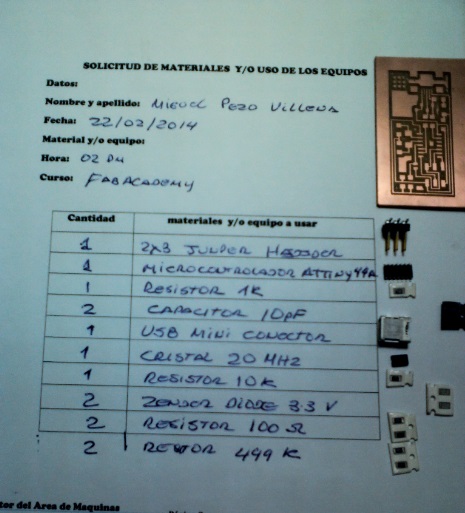 SOLICITUD DE MATERIALES Y/O USO DE LOS EQUIPOS
Datos:
Nombre y apellido: MIGUEL PEZO VILLENA
Fecha: 22/02/2014
Material y/o equipo:
Hora: 02 PM
Curso: FABACADEMY
Cantidad materiales y/o equipo a usar
1 2x3 JUMPER HEADER
1 MICROCONTROLADOR ATTINY44A
1 RESISTOR 1K
2 CAPACITOR 10pF
1 USB MINI CONECTOR
1 CRISTAL 20 MHz
1 RESISTOR 10K
2 ZENDER DIODE 3.3 V
2 RESISTOR 100 Ω
2 RESTOR 499 K
tor del Area de Maquinas